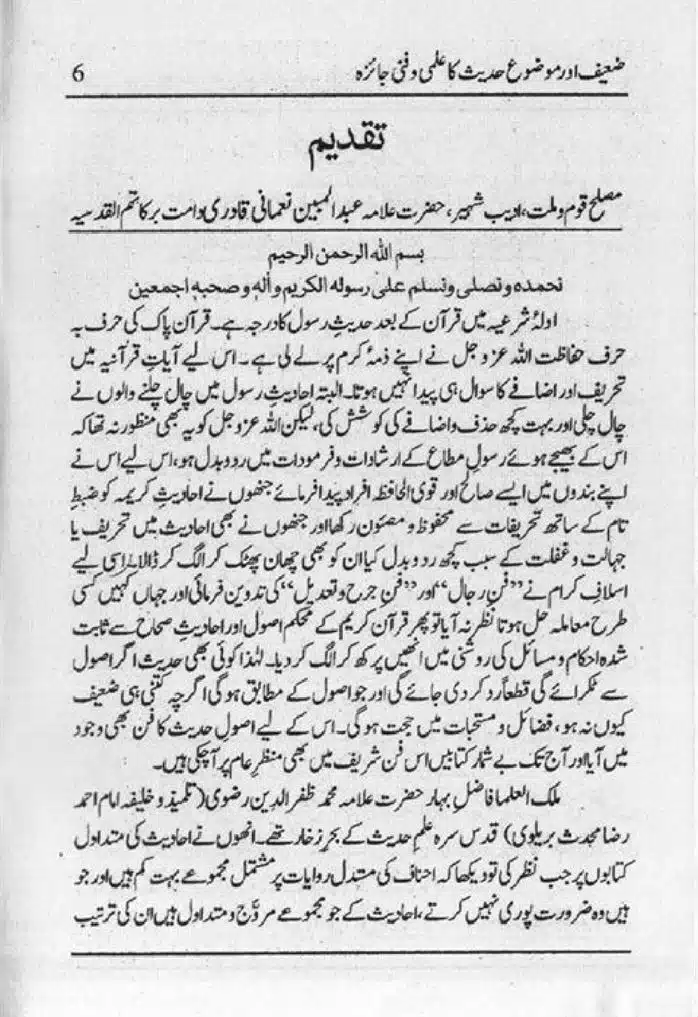 ضعیف اور موضوع حدیث کا علمی و فنی جائزہ 6
تقدیم
مصلح قوم و ملت، ادیب شہیر، حضرت علامہ عبدالمبین نعمانی قادری دامت برکاتهم القدسیہ
بسم الله الرحمن الرحیم
نحمده و نصلی و نسلم علی رسوله الکریم و اٰلهٖ و صحبهٖ اجمعین
ادلۂ شرعیہ میں قرآن کے بعد حدیثِ رسول کا درجہ ہے۔ قرآن پاک کی حرف بہ
حرف حفاظت اللہ عزوجل نے اپنے ذمۂ کرم پر لے لی ہے۔ اس لیے آیاتِ قرآنیہ میں
تحریف اور اضافے کا سوال ہی پیدا نہیں ہوتا۔ البتہ احادیثِ رسول میں چال چلنے والوں نے
چال چلی اور بہت کچھ حذف و اضافے کی کوشش کی، لیکن اللہ عزوجل کو یہ بھی منظور نہ تھا کہ
اس کے بھیجے ہوئے رسولِ مطاع کے ارشادات و فرمودات میں ردوبدل ہو، اس لیے اس نے
اپنے بندوں میں ایسے صالح اور قوی الحافظہ افراد پیدا فرمائے جنھوں نے احادیثِ کریمہ کو ضبطِ
تام کے ساتھ تحریفات سے محفوظ و مصئون رکھا اور جنھوں نے بھی احادیث میں تحریف یا
جہالت و غفلت کے سبب کچھ ردوبدل کیا ان کو بھی چھان پھٹک کر الگ کر ڈالا۔ اسی لیے
اسلافِ کرام نے ”فنِ رجال“ اور ”فنِ جرح و تعدیل“ کی تدوین فرمائی اور جہاں کہیں کسی
طرح معاملہ حل ہوتا نظر نہ آیا تو پھر قرآن کریم کے محکم اصول اور احادیثِ صحاح سے ثابت
شدہ احکام و مسائل کی روشنی میں انھیں پرکھ کر الگ کر دیا۔ لہٰذا کوئی بھی حدیث اگر اصول
سے ٹکرائے گی قطعاً رد کر دی جائے گی اور جو اصول کے مطابق ہوگی اگرچہ کتنی ہی ضعیف
کیوں نہ ہو، فضائل و مستحبات میں حجت ہوگی۔ اس کے لیے اصولِ حدیث کا فن بھی وجود
میں آیا اور آج تک بے شمار کتابیں اس فن شریف میں بھی منظرِ عام پر آچکی ہیں۔
ملک العلما فاضلِ بہار حضرت علامہ محمد ظفر الدین رضوی (تلمیذ و خلیفہ امام احمد
رضا محدث بریلوی) قدس سرہ علمِ حدیث کے بحرِ زخار تھے۔ انھوں نے احادیث کی متداول
کتابوں پر جب نظر کی تو دیکھا کہ احناف کی متدل روایات پر مشتمل مجموعے بہت کم ہیں اور جو
ہیں وہ ضرورت پوری نہیں کرتے، احادیث کے جو مجموعے مروَّج و متداول ہیں ان کی ترتیب